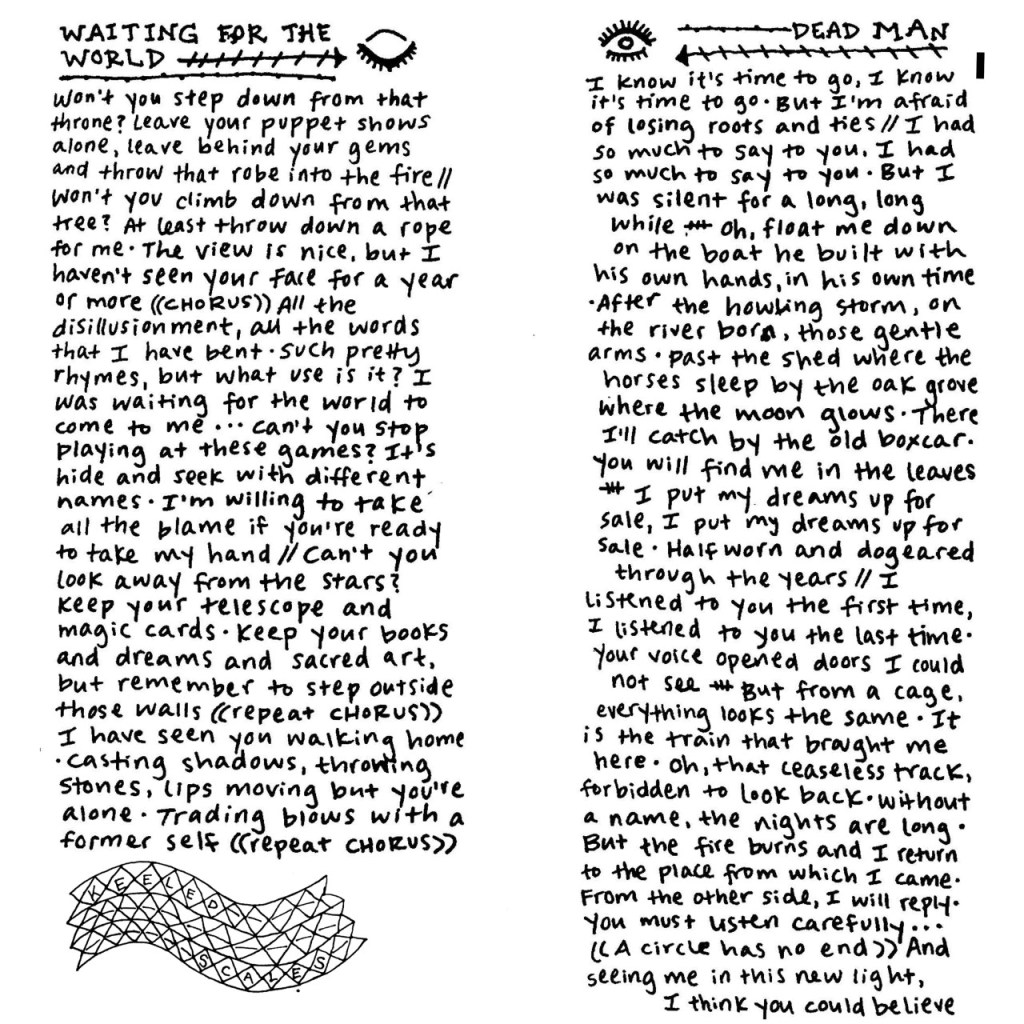 WAITING FOR THE
WORLD
Won't you step down from that
throne? Leave your puppet shows
alone, leave behind your gems
and throw that robe into the fire //
Won't you climb down from that
tree? At least throw down a rope
for me · The view is nice, but I
haven't seen your face for a year
or more ((CHORUS)) All the
disillusionment, all the words
that I have bent · Such pretty
rhymes, but what use is it? I
was waiting for the world to
come to me ... can't you stop
playing at these games? It's
hide and seek with different
names · I'm willing to take
all the blame if you're ready
to take my hand // Can't you
look away from the stars?
Keep your telescope and
magic cards · Keep your books
and dreams and sacred art,
but remember to step outside
those walls ((repeat CHORUS))
I have seen you walking home
· casting shadows, throwing
stones, lips moving but you're
alone · Trading blows with a
former self ((repeat CHORUS))
KEELED
SCALES
DEAD MAN
I know it's time to go, I know
it's time to go · But I'm afraid
of losing roots and ties // I had
so much to say to you, I had
so much to say to you · But I
was silent for a long, long
while Oh, float me down
on the boat he built with
his own hands, in his own time
· After the howling storm, on
the river born, those gentle
arms · past the shed where the
horses sleep by the oak grove
where the moon glows · There
I'll catch by the old boxcar.
You will find me in the leaves
I put my dreams up for
sale, I put my dreams up for
sale · Half worn and dogeared
through the years // I
listened to you the first time,
I listened to you the last time.
Your voice opened doors I could
not see But from a cage,
everything looks the same · It
is the train that brought me
here · Oh, that ceaseless track,
forbidden to look back · without
a name, the nights are long ·
But the fire burns and I return
to the place from which I came.
From the other side, I will reply.
You must listen carefully...
((A circle has no end)) And
seeing me in this new light,
I think you could believe